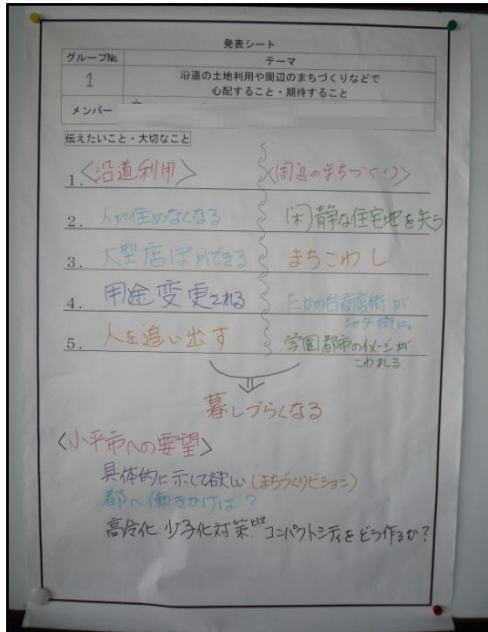 発表シート
グループNo. テーマ
1 沿道の土地利用や周辺のまちづくりなどで
心配すること・期待すること
メンバー
伝えたいこと・大切なこと
1. <沿道利用> <周辺のまちづくり>
2. 人が住めなくなる 閑静な住宅地を失う
3. 大型店ぽができる まちこわし
4. 用途変更される たかの台商店街が
シャッター街に。
5. 人を追い出す 学園都市のイメージが
こわれる
暮しづらくなる
<小平市への要望>
具体的に示して欲しい(まちづくりビジョン)
都へ働きかけは?
高令化、少子化対策 コンパクトシティをどう作るか?